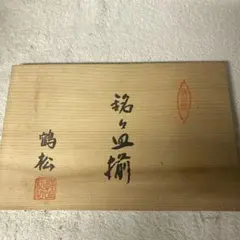 銘々皿揃
鶴松